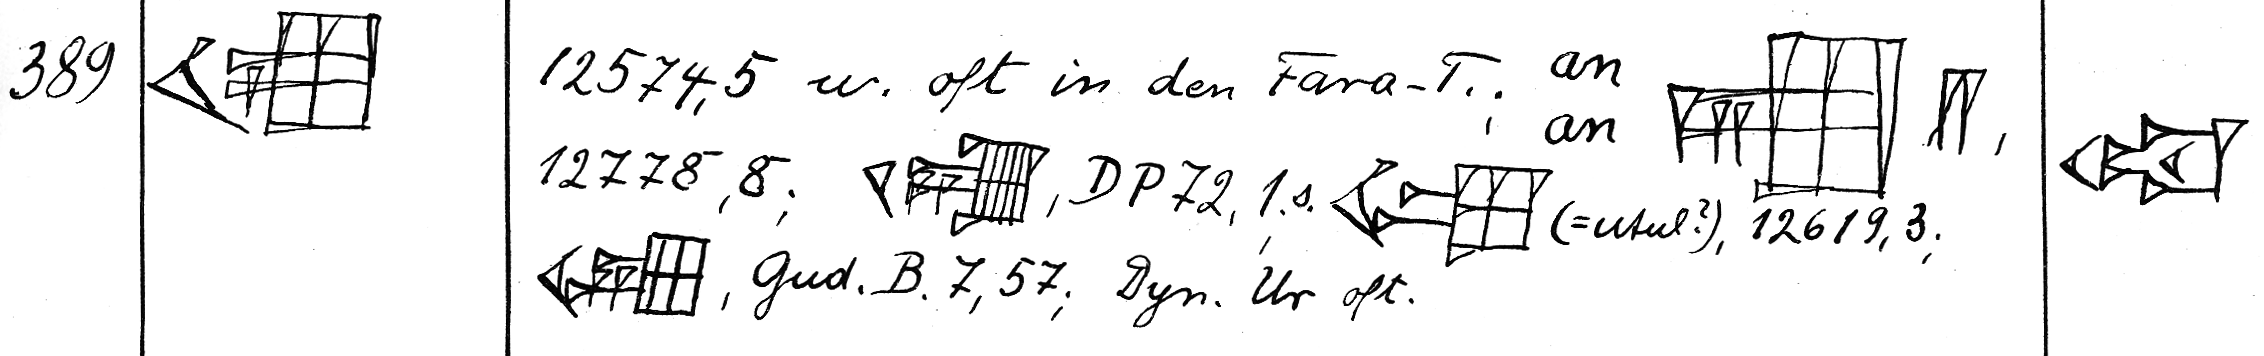 389
12574,5 u. oft in den Fara-T.; an an
12778,8; DP 72, 1. s. (=utul?), 12619,3;
Gud. B. 7,57; Dyn. Ur oft.